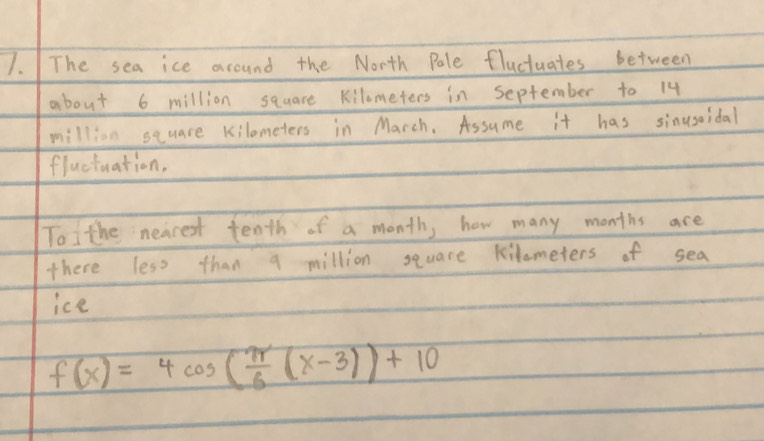 7. The sea ice around the North Pole fluctuates between
about 6 million square Kilometers in September to 14
million square Kilometers in March. Assume it has sinusoidal
fluctuation.
To the nearest tenth of a month, how many months are
there less than 9 million square Kilometers of sea
ice
f(x) = 4 cos (π/6 (x-3)) + 10